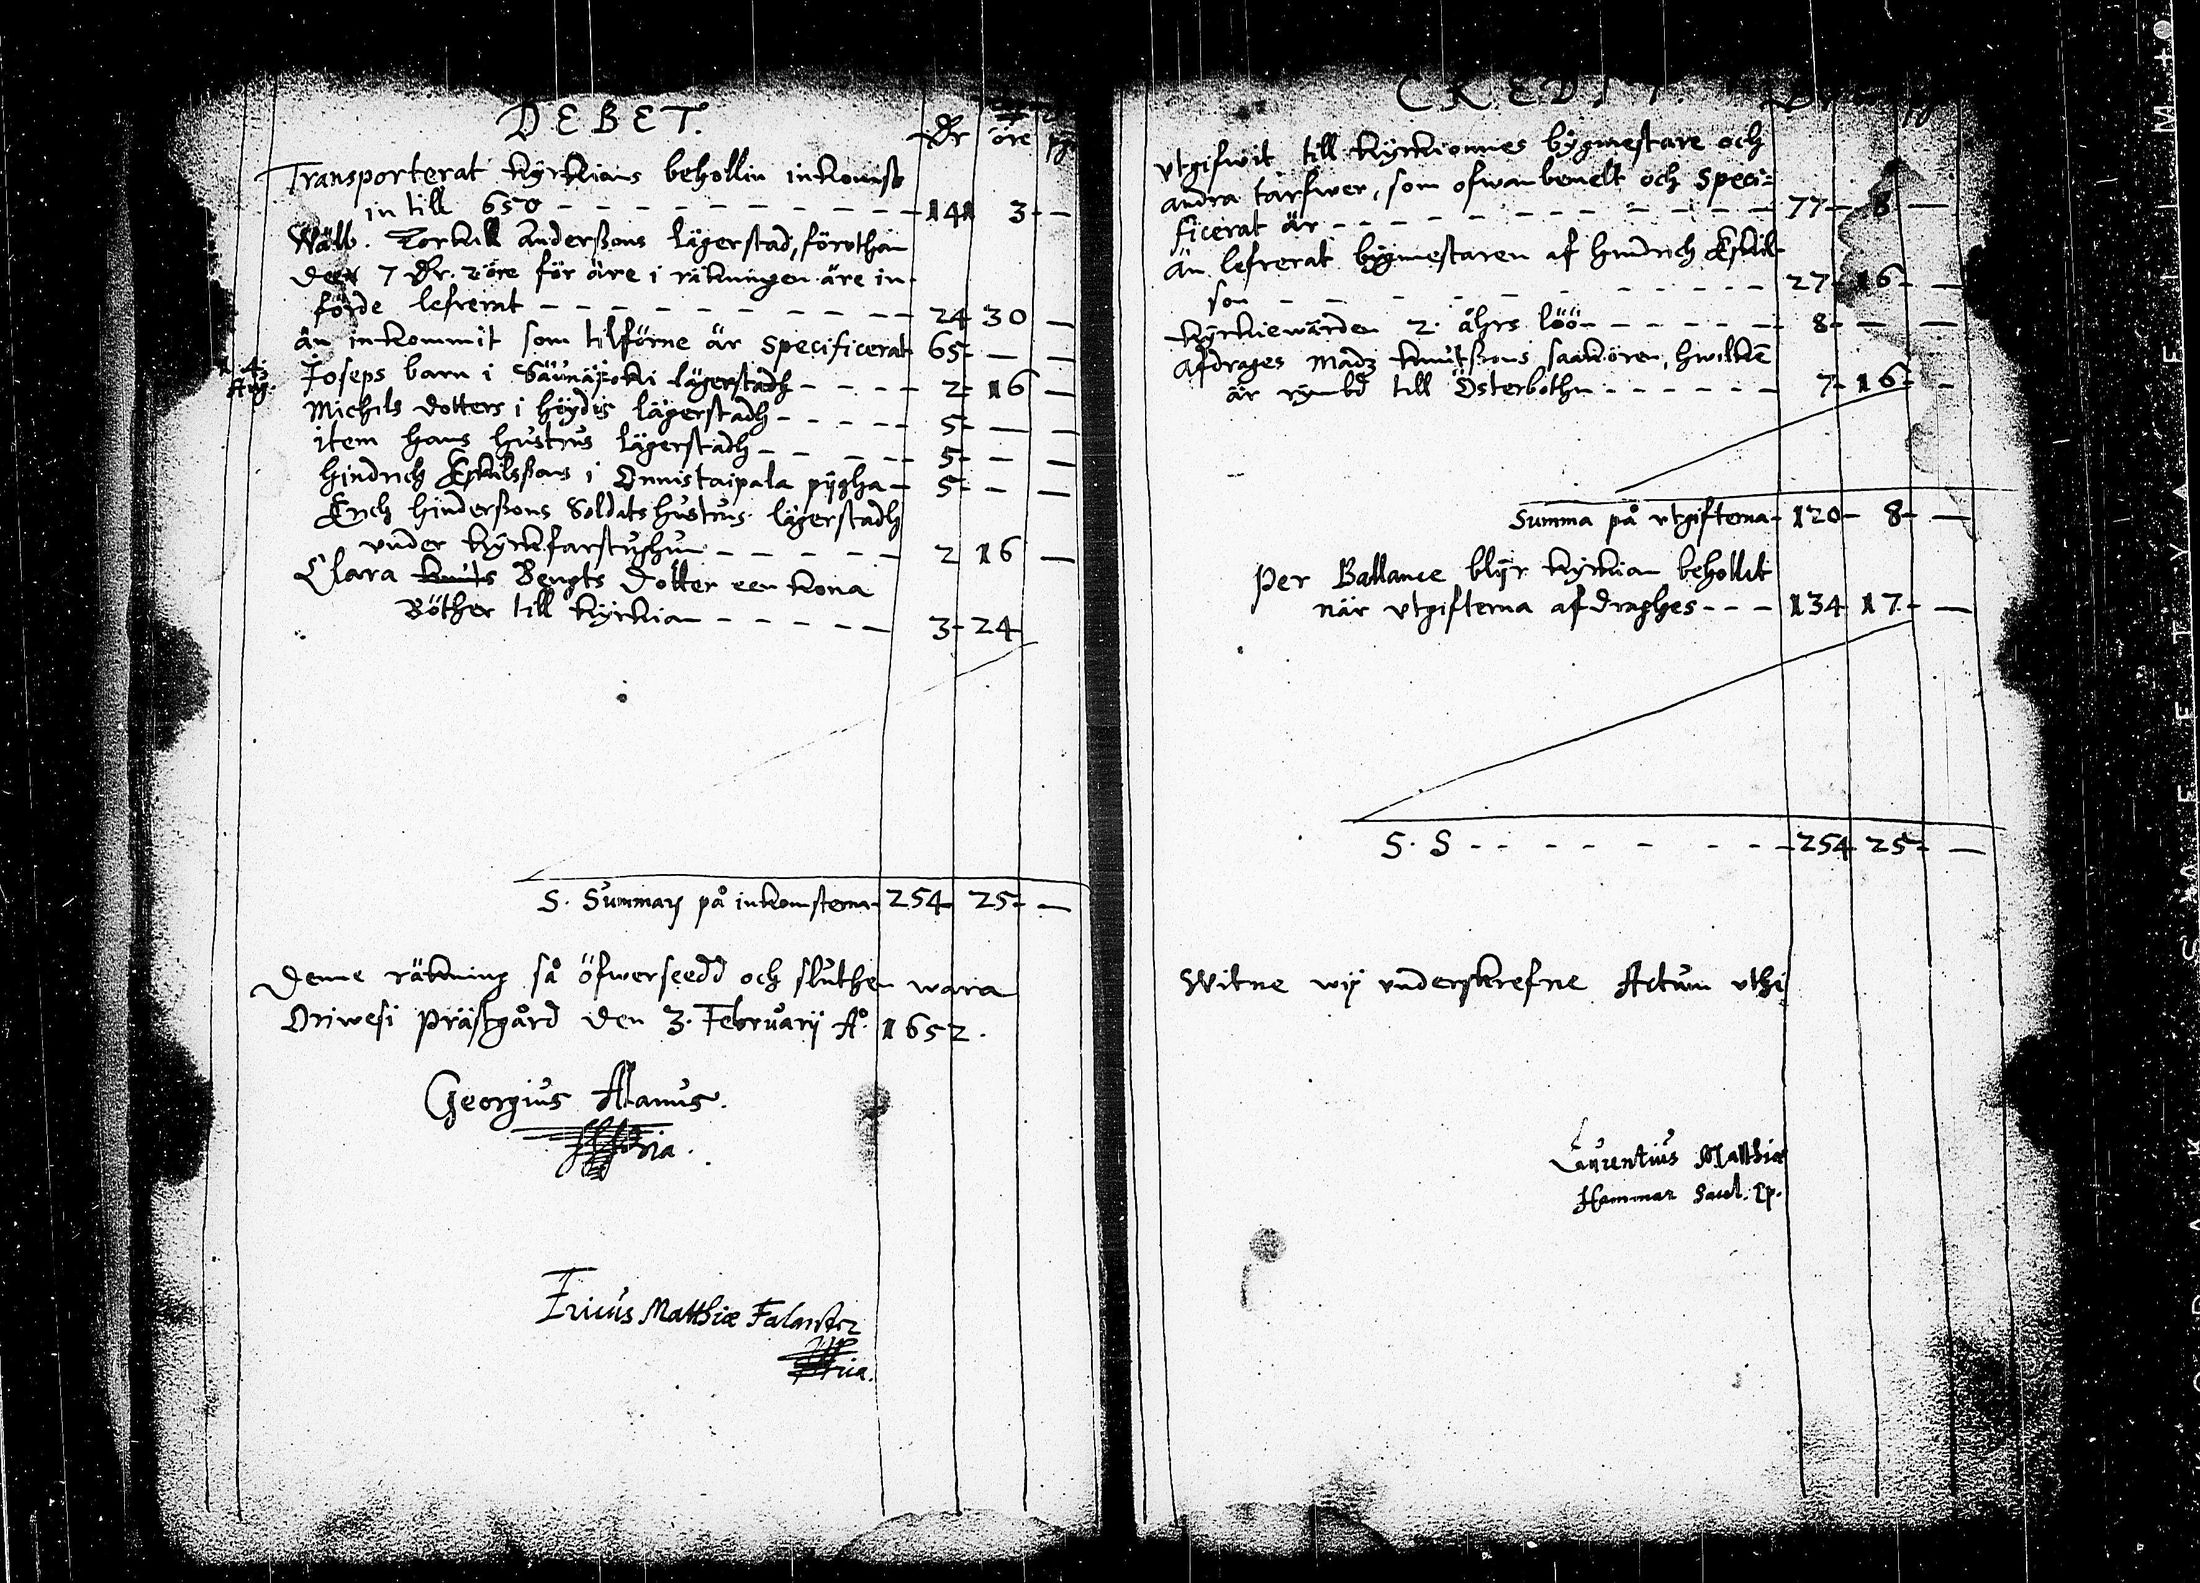 DEBET.
Dr öre
Transporterat kÿrkians behollin inkomst
in till 650 - - - - - - - - - 141 3 - -
Wälb. Torkill Anderßons lägerstad, föruthan
den 7 Dr. 2 öre för äre i räkningen äre in-
förde lefrerat - - - - - - - - 24 30 -
än inkommit som tilförne är Specificerat 65 - -
Aug. Joseps barn i Säünäjoki lägerstadh - - - - 2 16 -
Michils dotters i höÿdis lägerstadh - - - - - 5 - -
item hans hustrus lägerstadh - - - - - 5 - -
Hindrich Eskilsßons i Onnistaipala pÿgha - 5 - -
Erich Hinderßons Soldats hustrus lägerstadh
under kÿrkfarstughun - - - - - 2 16 -
Clara knuts Bengts dotter een kona
Böther till kÿrkian - - - - - 3 24
S. Summarj på inkomsterna 254 25 -
Denne räkning så öfwerseedd och sluthen wara
Oriwesi Prästgård den 3. Februarij A° 1652.
Georgius Alanus.
Ericus Matthiæ Falander
CREDIT.
utgifwit till kÿrkionnes bÿgmestare och
andra tarfwer, som ofwanbemelt och Speci=
ficerat är - - - - - - - - 77 8 -
än lefrerat bÿgmestaren af Hindrich Eskil-
son - - - - - - - - 27 16 -
kÿrkiewärden 2. åhrs löön - - - - - 8 - -
Afdrages Madz knutßons saakören, hwilken
är rÿmbd till Österbothn - - - - - - 7 16 -
Summa på utgifterna - 120 8 -
Per Ballance blÿr kÿrkian behollit
när utgifterna afdraghes - - - 134 17 -
S. S - - - - - - - - 254 25 -
Witne wij underskrefne Actum uthi
Laurentius Matthiæ
Hammar Sacel. Ip.